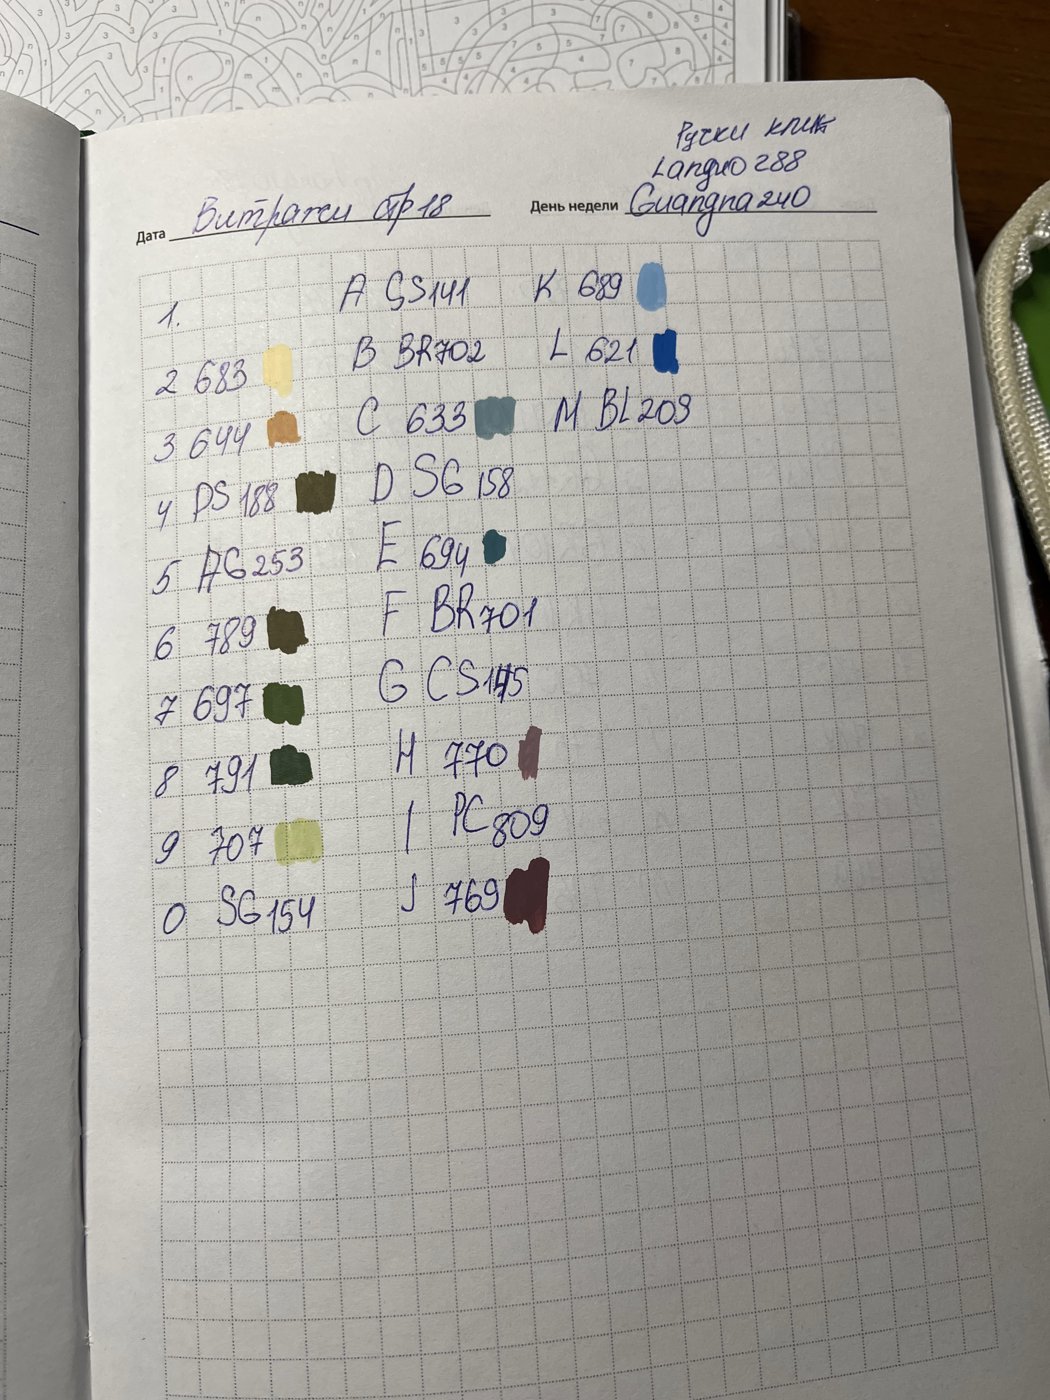 Ручки клик
Languo 288
Guangna 240
Дата Витражи стр 18
День недели
1.
2 683
3 644
4 DS 188
5 AG 253
6 789
7 697
8 791
9 707
0 SG 154
A GS141
B BR702
C 633
D SG 158
E 694
F BR701
G CS145
H 770
I PC 809
J 769
K 689
L 621
M BL 209